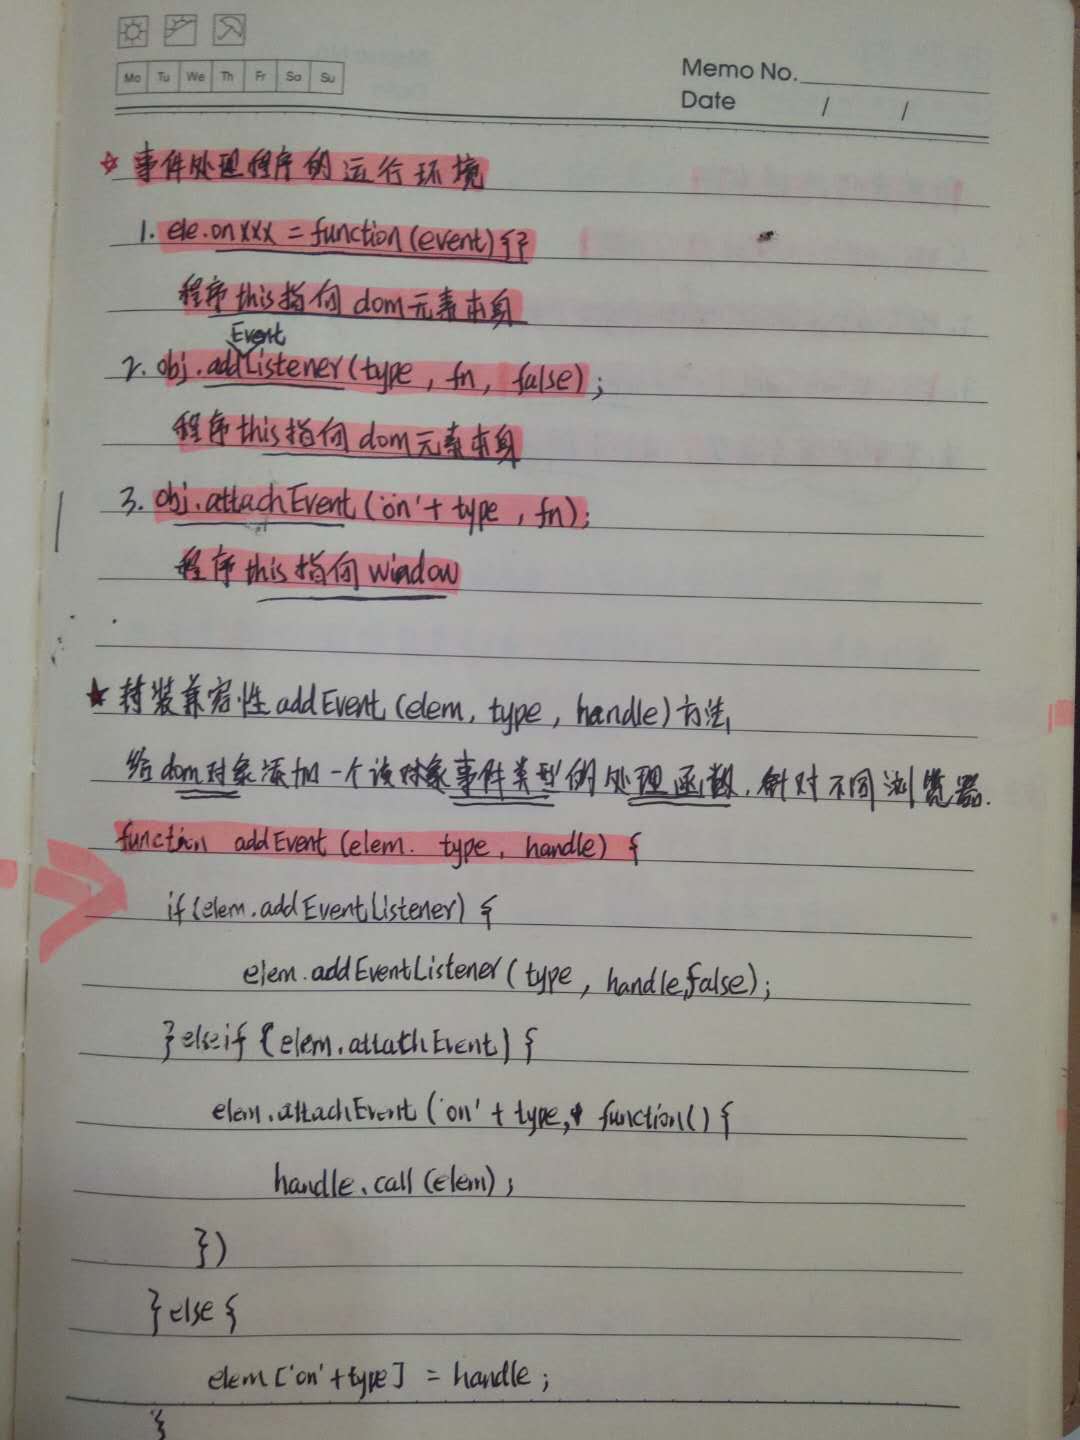 Mo Tu We Th Fr Sa Su
Memo No.
Date / /
☆ 事件处理程序的运行环境
1. ele.onxxx = function(event){}
程序this指向dom元素本身
Event
2. obj.addListener(type, fn, false);
程序this指向dom元素本身
3. obj.attachEvent('on'+ type, fn);
程序this指向window
★ 封装兼容性addEvent(elem, type, handle)方法
给dom对象添加一个该对象事件类型的处理函数,针对不同浏览器.
function addEvent(elem. type, handle) {
if(elem.addEventListener) {
elem.addEventListener(type, handle,false);
}else if (elem.attachEvent) {
elem.attachEvent('on' + type, function() {
handle.call(elem);
})
}else {
elem['on'+type] = handle;
}